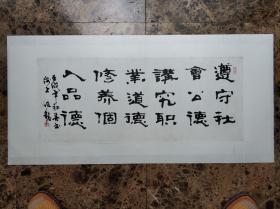 遵守社
會公德
講究职
業道德
修养個
人品德